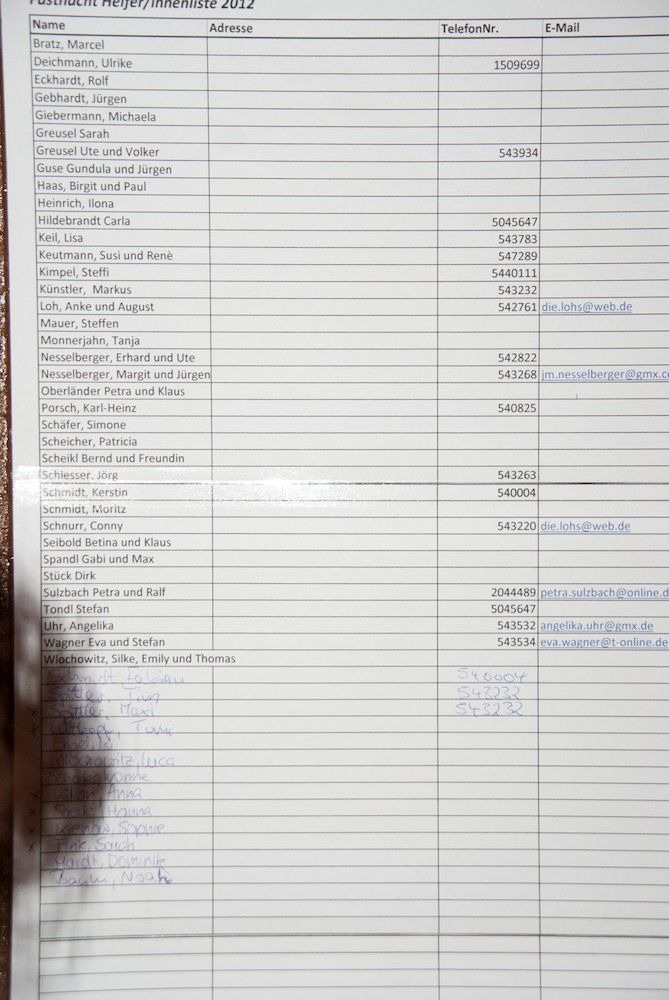 Fastnacht Helfer/innenliste 2012
Name Adresse TelefonNr. E-Mail
Bratz, Marcel
Deichmann, Ulrike 1509699
Eckhardt, Rolf
Gebhardt, Jürgen
Giebermann, Michaela
Greusel Sarah
Greusel Ute und Volker 543934
Guse Gundula und Jürgen
Haas, Birgit und Paul
Heinrich, Ilona
Hildebrandt Carla 5045647
Keil, Lisa 543783
Keutmann, Susi und Renè 547289
Kimpel, Steffi 5440111
Künstler, Markus 543232
Loh, Anke und August 542761 die.lohs@web.de
Mauer, Steffen
Monnerjahn, Tanja
Nesselberger, Erhard und Ute 542822
Nesselberger, Margit und Jürgen 543268 jm.nesselberger@gmx.c
Oberländer Petra und Klaus
Porsch, Karl-Heinz 540825
Schäfer, Simone
Scheicher, Patricia
Scheikl Bernd und Freundin
Schlesser, Jörg 543263
Schmidt, Kerstin 540004
Schmidt, Moritz
Schnurr, Conny 543220 die.lohs@web.de
Seibold Betina und Klaus
Spandl Gabi und Max
Stück Dirk
Sulzbach Petra und Ralf 2044489 petra.sulzbach@online.d
Tondl Stefan 5045647
Uhr, Angelika 543532 angelika.uhr@gmx.de
Wagner Eva und Stefan 543534 eva.wagner@t-online.de
Wlochowitz, Silke, Emily und Thomas
Schmidt Fabian 540004
Sattler, Tim 543232
Sattler, Maxi 543232
Wlochowitz, Luca
Anna
Hanna
Sophie
Fink, Sarah
Hardt, Dominik
Baum, Noah